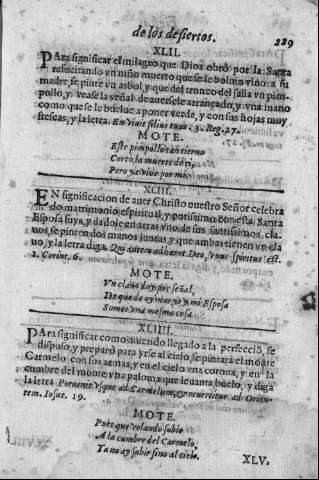 de los desiertos. 229
XLII.
PAra significar el milagro que Dios obrò por la Santa
resucitando vn niño muerto que se le boluio viuo a su
madre, se pinte vn arbol, y que del tronco del salla vn pim-
pollo, y vease la señal de auersele arrancado, y vna mano
como que se le buelue a poner verde, y con sus hojas muy
frescas, y la letra. En viuit filius tuus. 3. Reg. 27.
MOTE.
Este pimpollo tan tierno
Corto la muerte de ti,
Pero ya viue por mi.
XLIII.
EN significacion de auer Christo nuestro Señor celebra
do matrimonio espiritual, y purisimo con esta Santa
Esposa suya, y dadole en arras vno de sus santisimos, cla-
uos, se pinten dos manos juntas y que ambas tienen vn cla
uo, y la letra diga. Qui autem adhæret Deo, vnus spiritus est.
1. Corint. 6.
MOTE.
Vn clauo doy por señal,
De que de oy mas yo y mi Esposa
Somos vna mesma cosa.
XLIIII.
PAra significar como auiendo llegado a la perfecciõ, se
dispuso, y preparò para yrse al cielo, se pintarà el monte
Carmelo, con sus armas, y en el cielo vna corona, y en la
cumbre del monte vna paloma que leuanta buelo, y diga
la letra Peruenit vsque ad Carmelum, & reuertitur ad Orien-
tem. Iosue. 19.
MOTE.
Pues que volando subio
A la cumbre del Carmelo,
Ya no ay subir sino al cielo.
XLV.